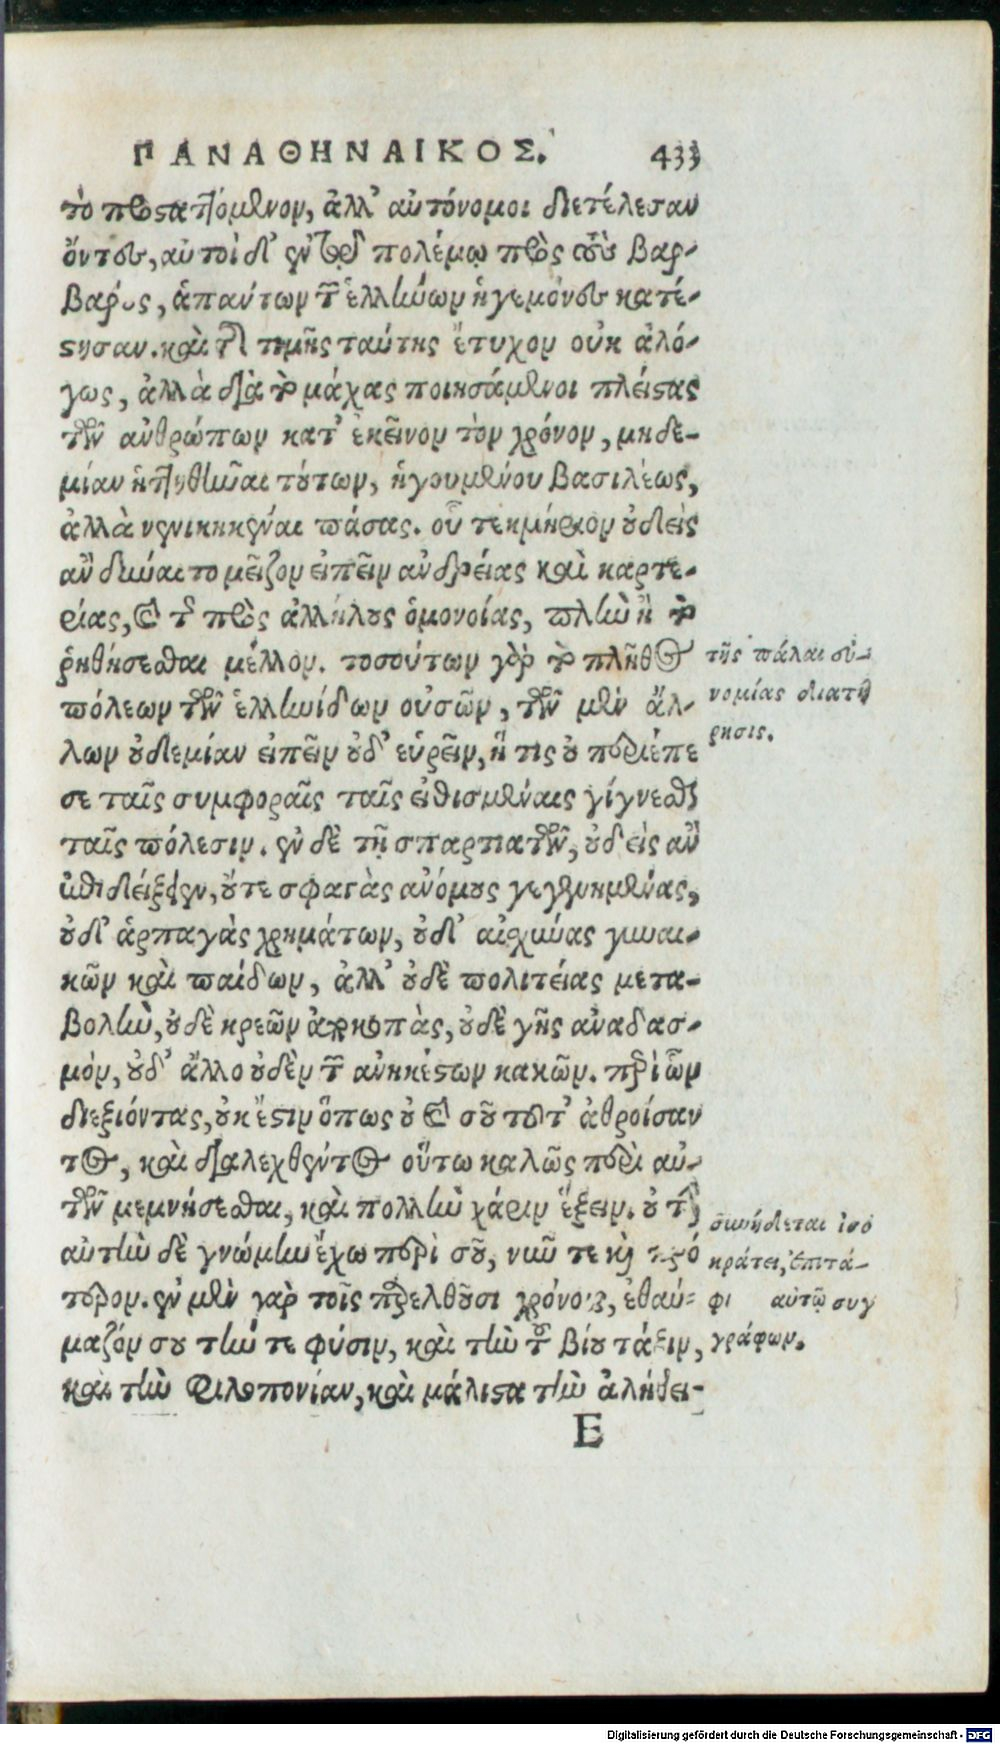 ΠΑΝΑΘΗΝΑΙΚΟΣ. 433
τὸ προσταττόμενον, ἀλλ' αὐτόνομοι διετέλεσαν
ὄντες, αὐτοὶ δ' ἐν τῷ πολέμῳ πρὸς τοὺς βαρ-
βάρους, ἁπάντων τῶν ἑλλήνων ἡγεμόνες κατέ-
στησαν. καὶ τῆς τιμῆς ταύτης ἔτυχον οὐκ ἀλό-
γως, ἀλλὰ διὰ τὸ μάχας ποιησάμενοι πλείστας
τῶν ἀνθρώπων κατ' ἐκεῖνον τὸν χρόνον, μηδε-
μίαν ἡττηθῆναι τούτων, ἡγουμένου βασιλέως,
ἀλλὰ νενικηκέναι πάσας. οὗ τεκμήριον οὐδεὶς
ἂν δύναιτο μεῖζον εἰπεῖν ἀνδρείας καὶ καρτε-
ρίας, καὶ τῆς πρὸς ἀλλήλους ὁμονοίας, πλὴν ἢ τὸ
ῥηθήσεσθαι μέλλον. τοσούτων γὰρ τὸ πλῆθος
πόλεων τῶν ἑλληνίδων οὐσῶν, τῶν μὲν ἄλ-
λων οὐδεμίαν εἰπεῖν οὐδ' εὑρεῖν, ἥ τις οὐ περιέπε
σε ταῖς συμφοραῖς ταῖς εἰθισμέναις γίγνεσθαι
ταῖς πόλεσιν. ἐν δὲ τῇ σπαρτιατῶν, οὐδεὶς ἂν
ἐπιδείξειεν, οὔτε σφαγὰς ἀνόμους γεγενημένας,
οὐδ' ἁρπαγὰς χρημάτων, οὐδ' αἰσχύνας γυναι-
κῶν καὶ παίδων, ἀλλ' οὐδὲ πολιτείας μετα-
βολὴν, οὐδὲ χρεῶν ἀποκοπὰς, οὐδὲ γῆς ἀναδασ-
μὸν, οὐδ' ἄλλο οὐδὲν τῶν ἀνηκέστων κακῶν. περὶ ὧν
διεξιόντας, οὐκ ἔστιν ὅπως οὐ καὶ σοῦ τοῦτ' ἀθροίσαν
τος, καὶ διαλεχθέντος οὕτω καλῶς περὶ αὐ-
τῶν μεμνήσεσθαι, καὶ πολλὴν χάριν ἕξειν. οὐ τὴν
αὐτὴν δὲ γνώμην ἔχω περὶ σοῦ, νῦν τε καὶ πρό
τερον. ἐν μὲν γὰρ τοῖς παρελθοῦσι χρόνοις, ἐθαύ-
μαζόν σου τήν τε φύσιν, καὶ τὴν τοῦ βίου τάξιν,
καὶ τὴν φιλοπονίαν, καὶ μάλιστα τὴν ἀλήθει-
Ε
τῆς πάλαι εὐ-
νομίας διατή
ρησις.
συνήδεται ἰσο
κράτει, ἐπιτά-
φι αὐτῷ συγ
γράφων.
Digitalisierung gefördert durch die Deutsche Forschungsgemeinschaft - DFG